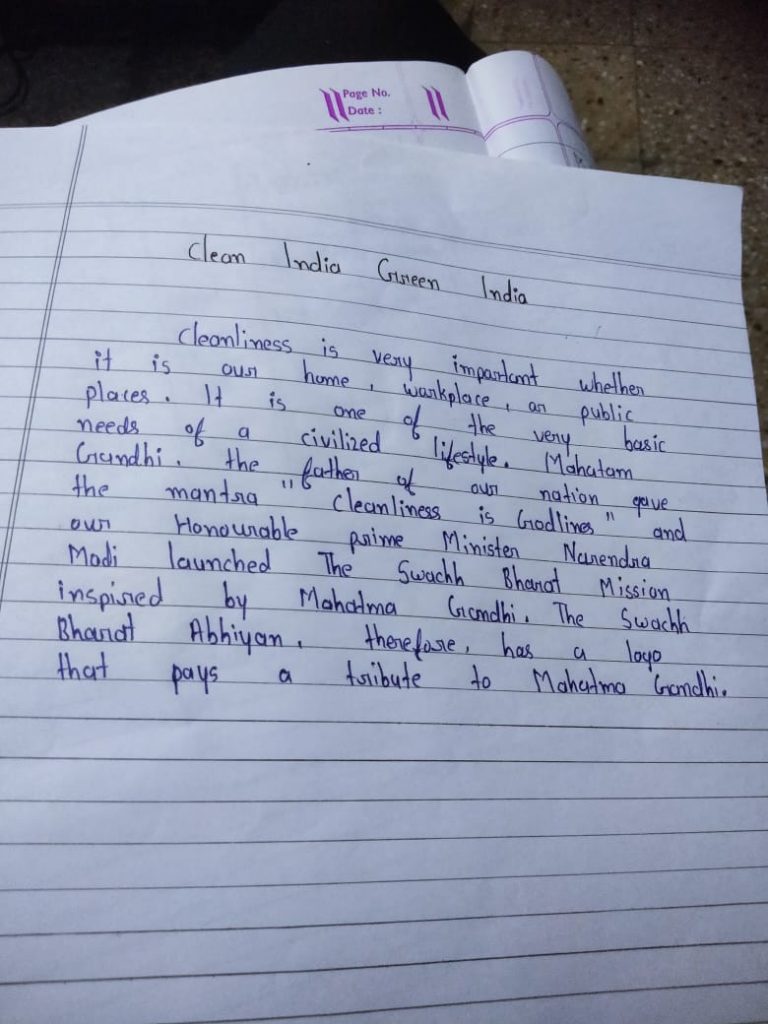 Page No.
Date :
Clean India Green India
Cleanliness is very important whether
it is our home, workplace, or public
places. It is one of the very basic
needs of a civilized lifestyle. Mahatam
Gandhi. the father of our nation gave
the mantra "Cleanliness is Godlines" and
our Honourable prime Minister Narendra
Modi launched The Swachh Bharat Mission
inspired by Mahatma Gandhi. The Swachh
Bharat Abhiyan, therefore, has a logo
that pays a tribute to Mahatma Gandhi.